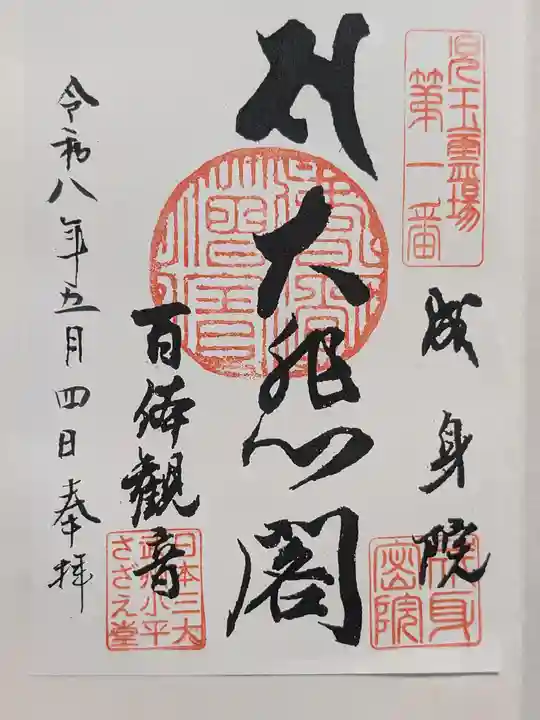 児玉霊場
第一番
成身院
成身
密院
大悲閣
百体観音
日本三大
武州小平
さざえ堂
令和八年五月四日奉拝